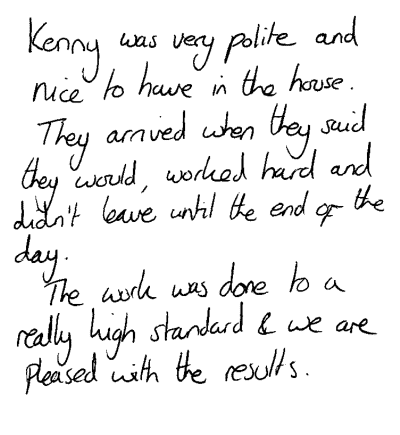 Kenny was very polite and
nice to have in the house.
They arrived when they said
they would, worked hard and
didn't leave until the end of the
day.
The work was done to a
really high standard & we are
pleased with the results.